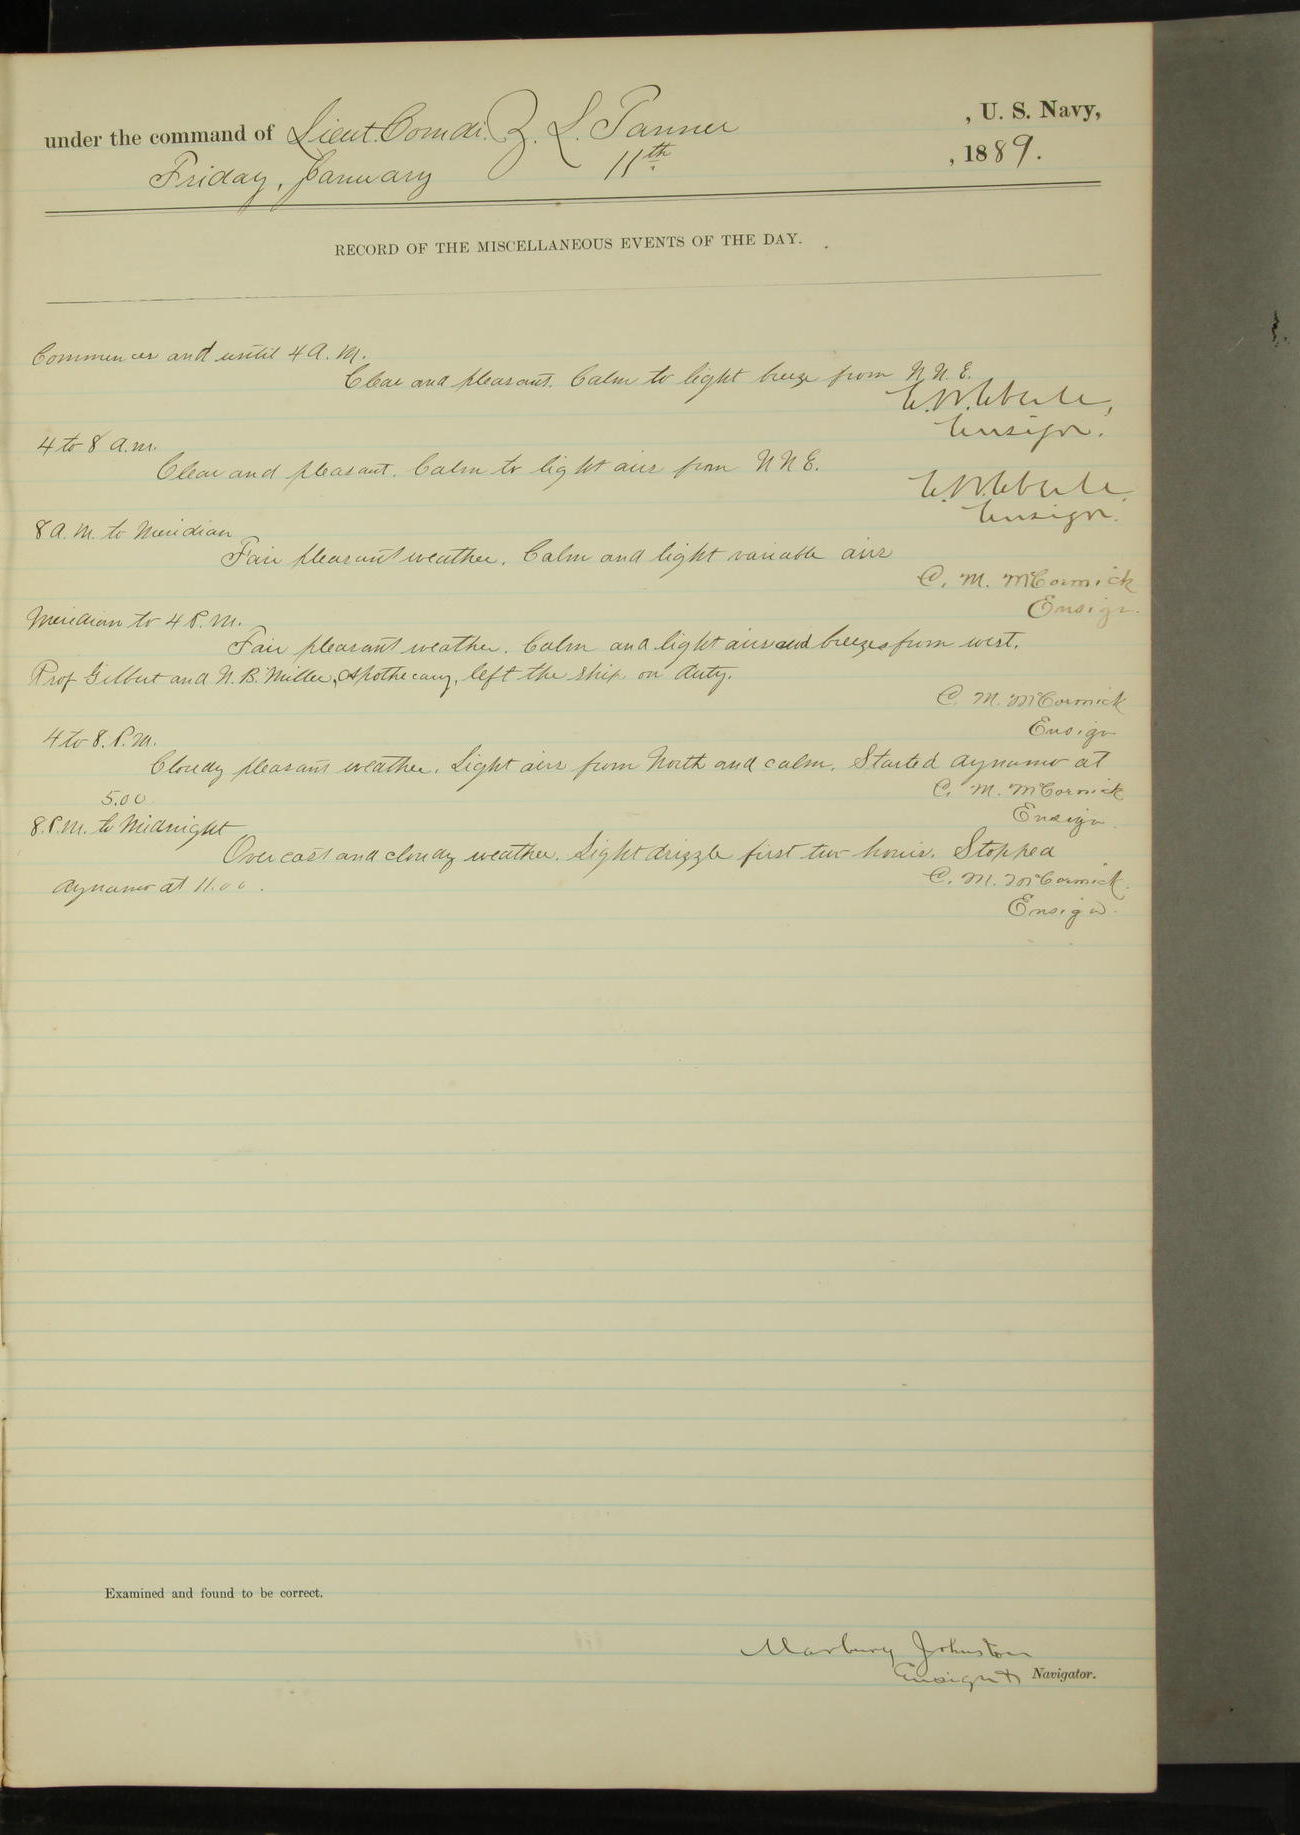 under the command of Lieut. Comdr. Z. L. Tanner , U. S. Navy,
Friday, January 11th , 1889.
RECORD OF THE MISCELLANEOUS EVENTS OF THE DAY.
Commences and until 4 A. M.
Clear and pleasant. Calm to light breeze from N. N. E.
E. W. Eberle,
Ensign.
4 to 8 A.m.
Clear and pleasant. Calm to light airs from N N E.
E. W. Eberle,
Ensign.
8 A. M. to Meridian
Fair pleasant weather. Calm and light variable airs
C. M. McCormick
Ensign.
Meridian to 4 P. M.
Fair pleasant weather. Calm and light airs and breezes from west.
Prof Gilbert and N. B. Miller, Apothecary, left the ship on duty.
C. M. McCormick
Ensign
4 to 8. P. M.
Cloudy pleasant weather. Light airs from North and calm. Started dynamo at
5.00
C. M. McCormick
Ensign.
8. P.M. to Midnight
Overcast and cloudy weather. Light drizzle first two hours. Stopped
dynamo at 11.00.
C. M. McCormick.
Ensign.
Examined and found to be correct.
Marbury Johnston
Ensign & Navigator.